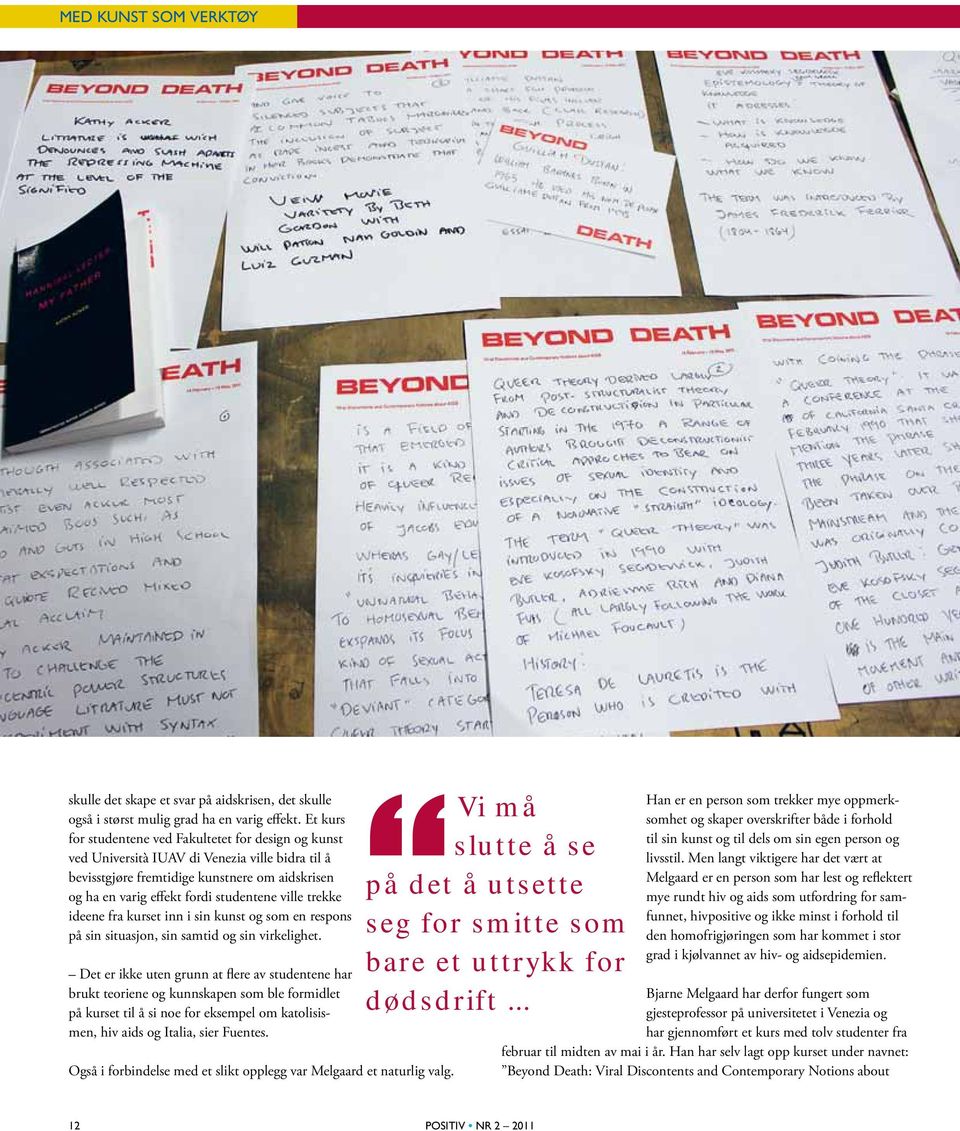 MED KUNST SOM VERKTØY
BEYOND DEATH
KATHY ACKER
LITRATURE IS WICH
DENOUNCES AND SLASH AGAINTS
THE REPRESSING MACHINE
AT THE LEVEL OF THE
SIGNIFIED
HANNIBAL LECTER
MY FATHER
KATHY ACKER
BEYOND DEATH
AND GIVE VOICE TO
SILENCED SUBJECTS THAT
THE INCLUSION OF SUBJECT
IN HER BOOKS DEMONSTRATE THAT
CONVICTION.
VEIW MOVIE
VARITETY BY BETH
GORDON WITH
WILL PATTON NAN GOLDIN AND
LUIZ GUZMAN
YOND DEATH
BEYOND
GUILLIAM DUSTAN:
WILLIAM BARANES BORN IN
1965 HE USED HIS NOM DE PLUME
GUILIAME DUSTAN FROM 1995
ESSAI
DEATH
BEYOND DEATH
EPISTEMOLOGY = THEORY OF
KNOWLEDGE
IT ADRESSES:
– WHAT IS KNOWLEDGE
– HOW IS KNOWLEDGE
ACQUIRED
– HOW DO WE KNOW
WHAT WE KNOW
THE TERM WAS INTRODUCED BY
JAMES FREDERICK FERRIER
(1804-1864)
EATH
14 February – 15 May, 2011
1
THOUGH ASSOCIATED WITH
WELL RESPECTED
EVEN ACKER MOST
BOOS SUCH, AS
D AND GUTS IN HIGH SCHOOL
AT EKSPECTATIONS AND
QUOTE RECIVED MIXED
AL ACCLAIM
Y ACKER MAINTAINED IN
TO CHALLENGE THE
CENTRIC POWER STRUCTURES
NGUAGE LITRATURE MUST NOT
IMENT WITH SYNTAX
BEYOND
Viral Discontents and Contemporary Notions about AIDS
IS A FIELD OF
THAT EMERGED
IT IS A KIND
OF QUEER RE
HEAVILY INFLUENC
OF JACOBS
WHERAS GAY/LE
ITS INQUIERIES IN
"UNNATURAL BEHA
TO HOMOSEXUAL BEH
EKSPANDS ITS FOCUS
KIND OF SEXUAL ACT
THAT FALLS INTO
"DEVIANT" CATEGO
QUEER THEORY STAR
BEYOND DEATH
Viral Discontents and Contemporary Notions about AIDS
14 February – 15 May, 2011
2
QUEER THEORY DERIVED LARGLY
FROM POST-STRUCTURALIST THEORY
AND DECONSTRUCTION IN PARTICULAR
STARTING IN THE 1970 A RANGE OF
AUTHORS BROUGTH DECONSTRUCTIONIST
CRITICAL APPROCHES TO BEAR ON
ISSUES OF SEXUAL IDENTITY AND
ESPECIALLY ON THE CONSTRUCTION
OF A NORMATIVE "STRAIGTH" IDEOLOGY.
THE TERM "QUEER THEORY" WAS
INTRODUCED IN 1990 WITH
EVE KOSOFSKY SEGDEWICK, JUDITH
BUTLER, ADRIENNE RICH AND DIANA
FUSS (ALL LARGLY FOLLOWING THE WORK
OF MICHAEL FOUCAULT)
HISTORY:
TERESA DE LAURETIS IS THE
PERSON WHO IS CREDITED WITH
BEYOND DEAT
Viral Discontents and Contemporary Notions about AIDS
WITH COINING THE PHRASE
"QUEER THEORY". IT WA
A CONFERENCE AT THE
OF CALIFORNIA SANTA CR
FEBRUARY 1990 THAT SH
MENTION THE PHRASE
THREE YEARS LATER SH
THE PHRASE ON THE
BEEN TAKEN OVER BY
MAINSTREAM AND THE
WAS ORIGINALLY CO
JUDITH BUTLER: GE
EVE KOSOFSKY SEG
OF THE CLOSET
ONE HUNDRED YE
IS THE MAIN
MOVEMENT AND
OF OTHER WRIT
skulle det skape et svar på aidskrisen, det skulle
også i størst mulig grad ha en varig effekt. Et kurs
for studentene ved Fakultetet for design og kunst
ved Università IUAV di Venezia ville bidra til å
bevisstgjøre fremtidige kunstnere om aidskrisen
og ha en varig effekt fordi studentene ville trekke
ideene fra kurset inn i sin kunst og som en respons
på sin situasjon, sin samtid og sin virkelighet.
– Det er ikke uten grunn at flere av studentene har
brukt teoriene og kunnskapen som ble formidlet
på kurset til å si noe for eksempel om katolisis-
men, hiv aids og Italia, sier Fuentes.
Også i forbindelse med et slikt opplegg var Melgaard et naturlig valg.
“Vi må
slutte å se
på det å utsette
seg for smitte som
bare et uttrykk for
dødsdrift ...
Han er en person som trekker mye oppmerk-
somhet og skaper overskrifter både i forhold
til sin kunst og til dels om sin egen person og
livsstil. Men langt viktigere har det vært at
Melgaard er en person som har lest og reflektert
mye rundt hiv og aids som utfordring for sam-
funnet, hivpositive og ikke minst i forhold til
den homofrigjøringen som har kommet i stor
grad i kjølvannet av hiv- og aidsepidemien.
Bjarne Melgaard har derfor fungert som
gjesteprofessor på universitetet i Venezia og
har gjennomført et kurs med tolv studenter fra
februar til midten av mai i år. Han har selv lagt opp kurset under navnet:
”Beyond Death: Viral Discontents and Contemporary Notions about
12
POSITIV • NR 2 – 2011